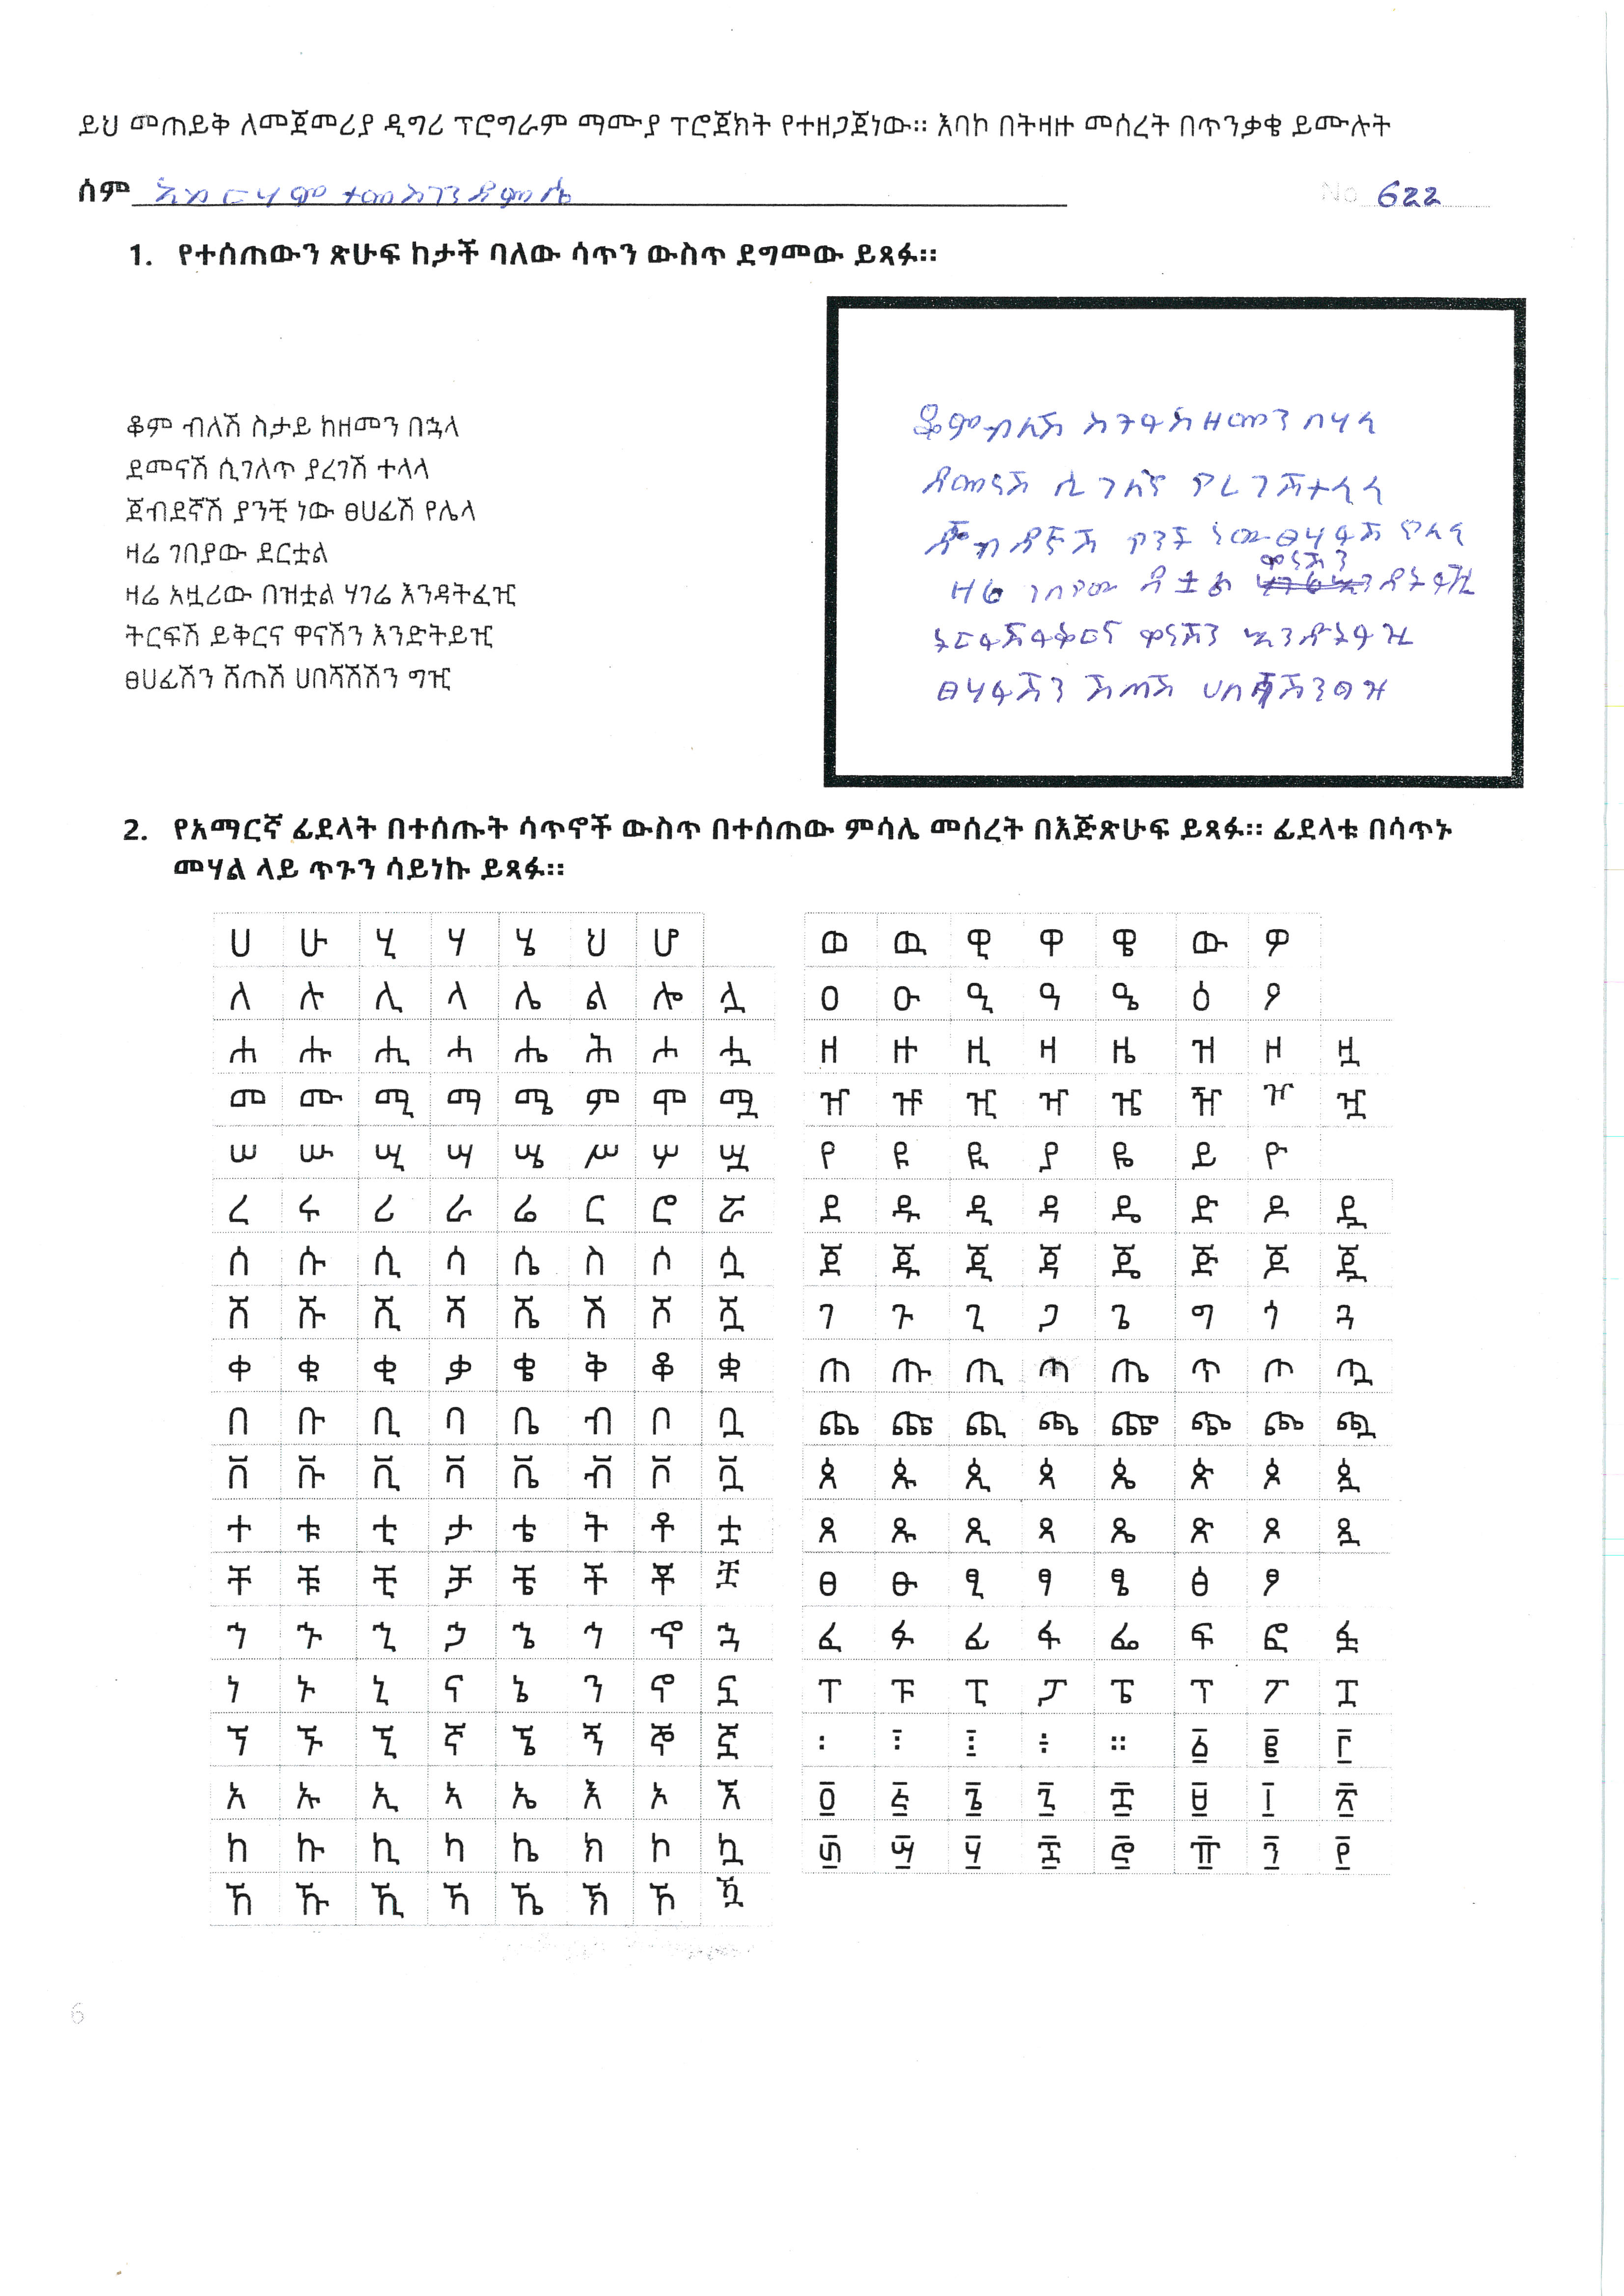 ይህ መጠይቅ ለመጀመሪያ ዲግሪ ፕሮግራም ማሙያ ፕሮጀክት የተዘጋጀነው። እባኮ በትዛዙ መሰረት በጥንቃቄ ይሙሉት
ስም አብርሃም ተመስገን ደምሴ No 622
1. የተሰጠውን ጽሁፍ ከታች ባለው ሳጥን ውስጥ ደግመው ይጻፉ።
ቆም ብለሽ ስታይ ከዘመን በኋላ
ደመናሽ ሲገለጥ ያረገሽ ተላላ
ጀብደኛሽ ያንቺ ነው ፀሀፊሽ የሌላ
ዛሬ ገበያው ደርቷል
ዛሬ አዟሪው በዝቷል ሃገሬ እንዳትፈዢ
ትርፍሽ ይቅርና ዋናሽን እንድትይዢ
ፀሀፊሽን ሸጠሽ ሀበሻሽሽን ግዢ
ቆም ብለሽ ዘመን በሃላ
ደመናሽ ሲገለ ያረገሽ ተላላ
ያንች ነው ፀሃፊሽ የለላ
ዋናሽን
ዛሬ ገበያው
ዋናሽን
ፀሃፊሽን ሽጠሽ
2. የአማርኛ ፊደላት በተሰጡት ሳጥኖች ውስጥ በተሰጠው ምሳሌ መሰረት በእጅጽሁፍ ይጻፉ። ፊደላቱ በሳጥኑ
መሃል ላይ ጥጉን ሳይነኩ ይጻፉ።
ሀ ሁ ሂ ሃ ሄ ህ ሆ
ለ ሉ ሊ ላ ሌ ል ሎ ሏ
ሐ ሑ ሒ ሓ ሔ ሕ ሖ ሗ
መ ሙ ሚ ማ ሜ ም ሞ ሟ
ሠ ሡ ሢ ሣ ሤ ሥ ሦ ሧ
ረ ሩ ሪ ራ ሬ ር ሮ ሯ
ሰ ሱ ሲ ሳ ሴ ስ ሶ ሷ
ሸ ሹ ሺ ሻ ሼ ሽ ሾ ሿ
ቀ ቁ ቂ ቃ ቄ ቅ ቆ ቋ
በ ቡ ቢ ባ ቤ ብ ቦ ቧ
ቨ ቩ ቪ ቫ ቬ ቭ ቮ ቯ
ተ ቱ ቲ ታ ቴ ት ቶ ቷ
ቸ ቹ ቺ ቻ ቼ ች ቾ ቿ
ኀ ኁ ኂ ኃ ኄ ኅ ኆ ኋ
ነ ኑ ኒ ና ኔ ን ኖ ኗ
ኘ ኙ ኚ ኛ ኜ ኝ ኞ ኟ
አ ኡ ኢ ኣ ኤ እ ኦ ኧ
ከ ኩ ኪ ካ ኬ ክ ኮ ኳ
ኸ ኹ ኺ ኻ ኼ ኽ ኾ ዃ
ወ ዉ ዊ ዋ ዌ ው ዎ
ዐ ዑ ዒ ዓ ዔ ዕ ዖ
ዘ ዙ ዚ ዛ ዜ ዝ ዞ ዟ
ዠ ዡ ዢ ዣ ዤ ዥ ዦ ዧ
የ ዩ ዪ ያ ዬ ይ ዮ
ደ ዱ ዲ ዳ ዴ ድ ዶ ዷ
ጀ ጁ ጂ ጃ ጄ ጅ ጆ ጇ
ገ ጉ ጊ ጋ ጌ ግ ጎ ጓ
ጠ ጡ ጢ ጣ ጤ ጥ ጦ ጧ
ጨ ጩ ጪ ጫ ጬ ጭ ጮ ጯ
ጰ ጱ ጲ ጳ ጴ ጵ ጶ ጷ
ጸ ጹ ጺ ጻ ጼ ጽ ጾ ጿ
ፀ ፁ ፂ ፃ ፄ ፅ ፆ
ፈ ፉ ፊ ፋ ፌ ፍ ፎ ፏ
ፐ ፑ ፒ ፓ ፔ ፕ ፖ ፗ
፡ ፤ ፣ ።  ፩ ፪ ፫
፬ ፭ ፮ ፯ ፰ ፱ ፲ ፳
፴ ፵ ፶ ፷ ፸ ፹ ፺ ፻
6